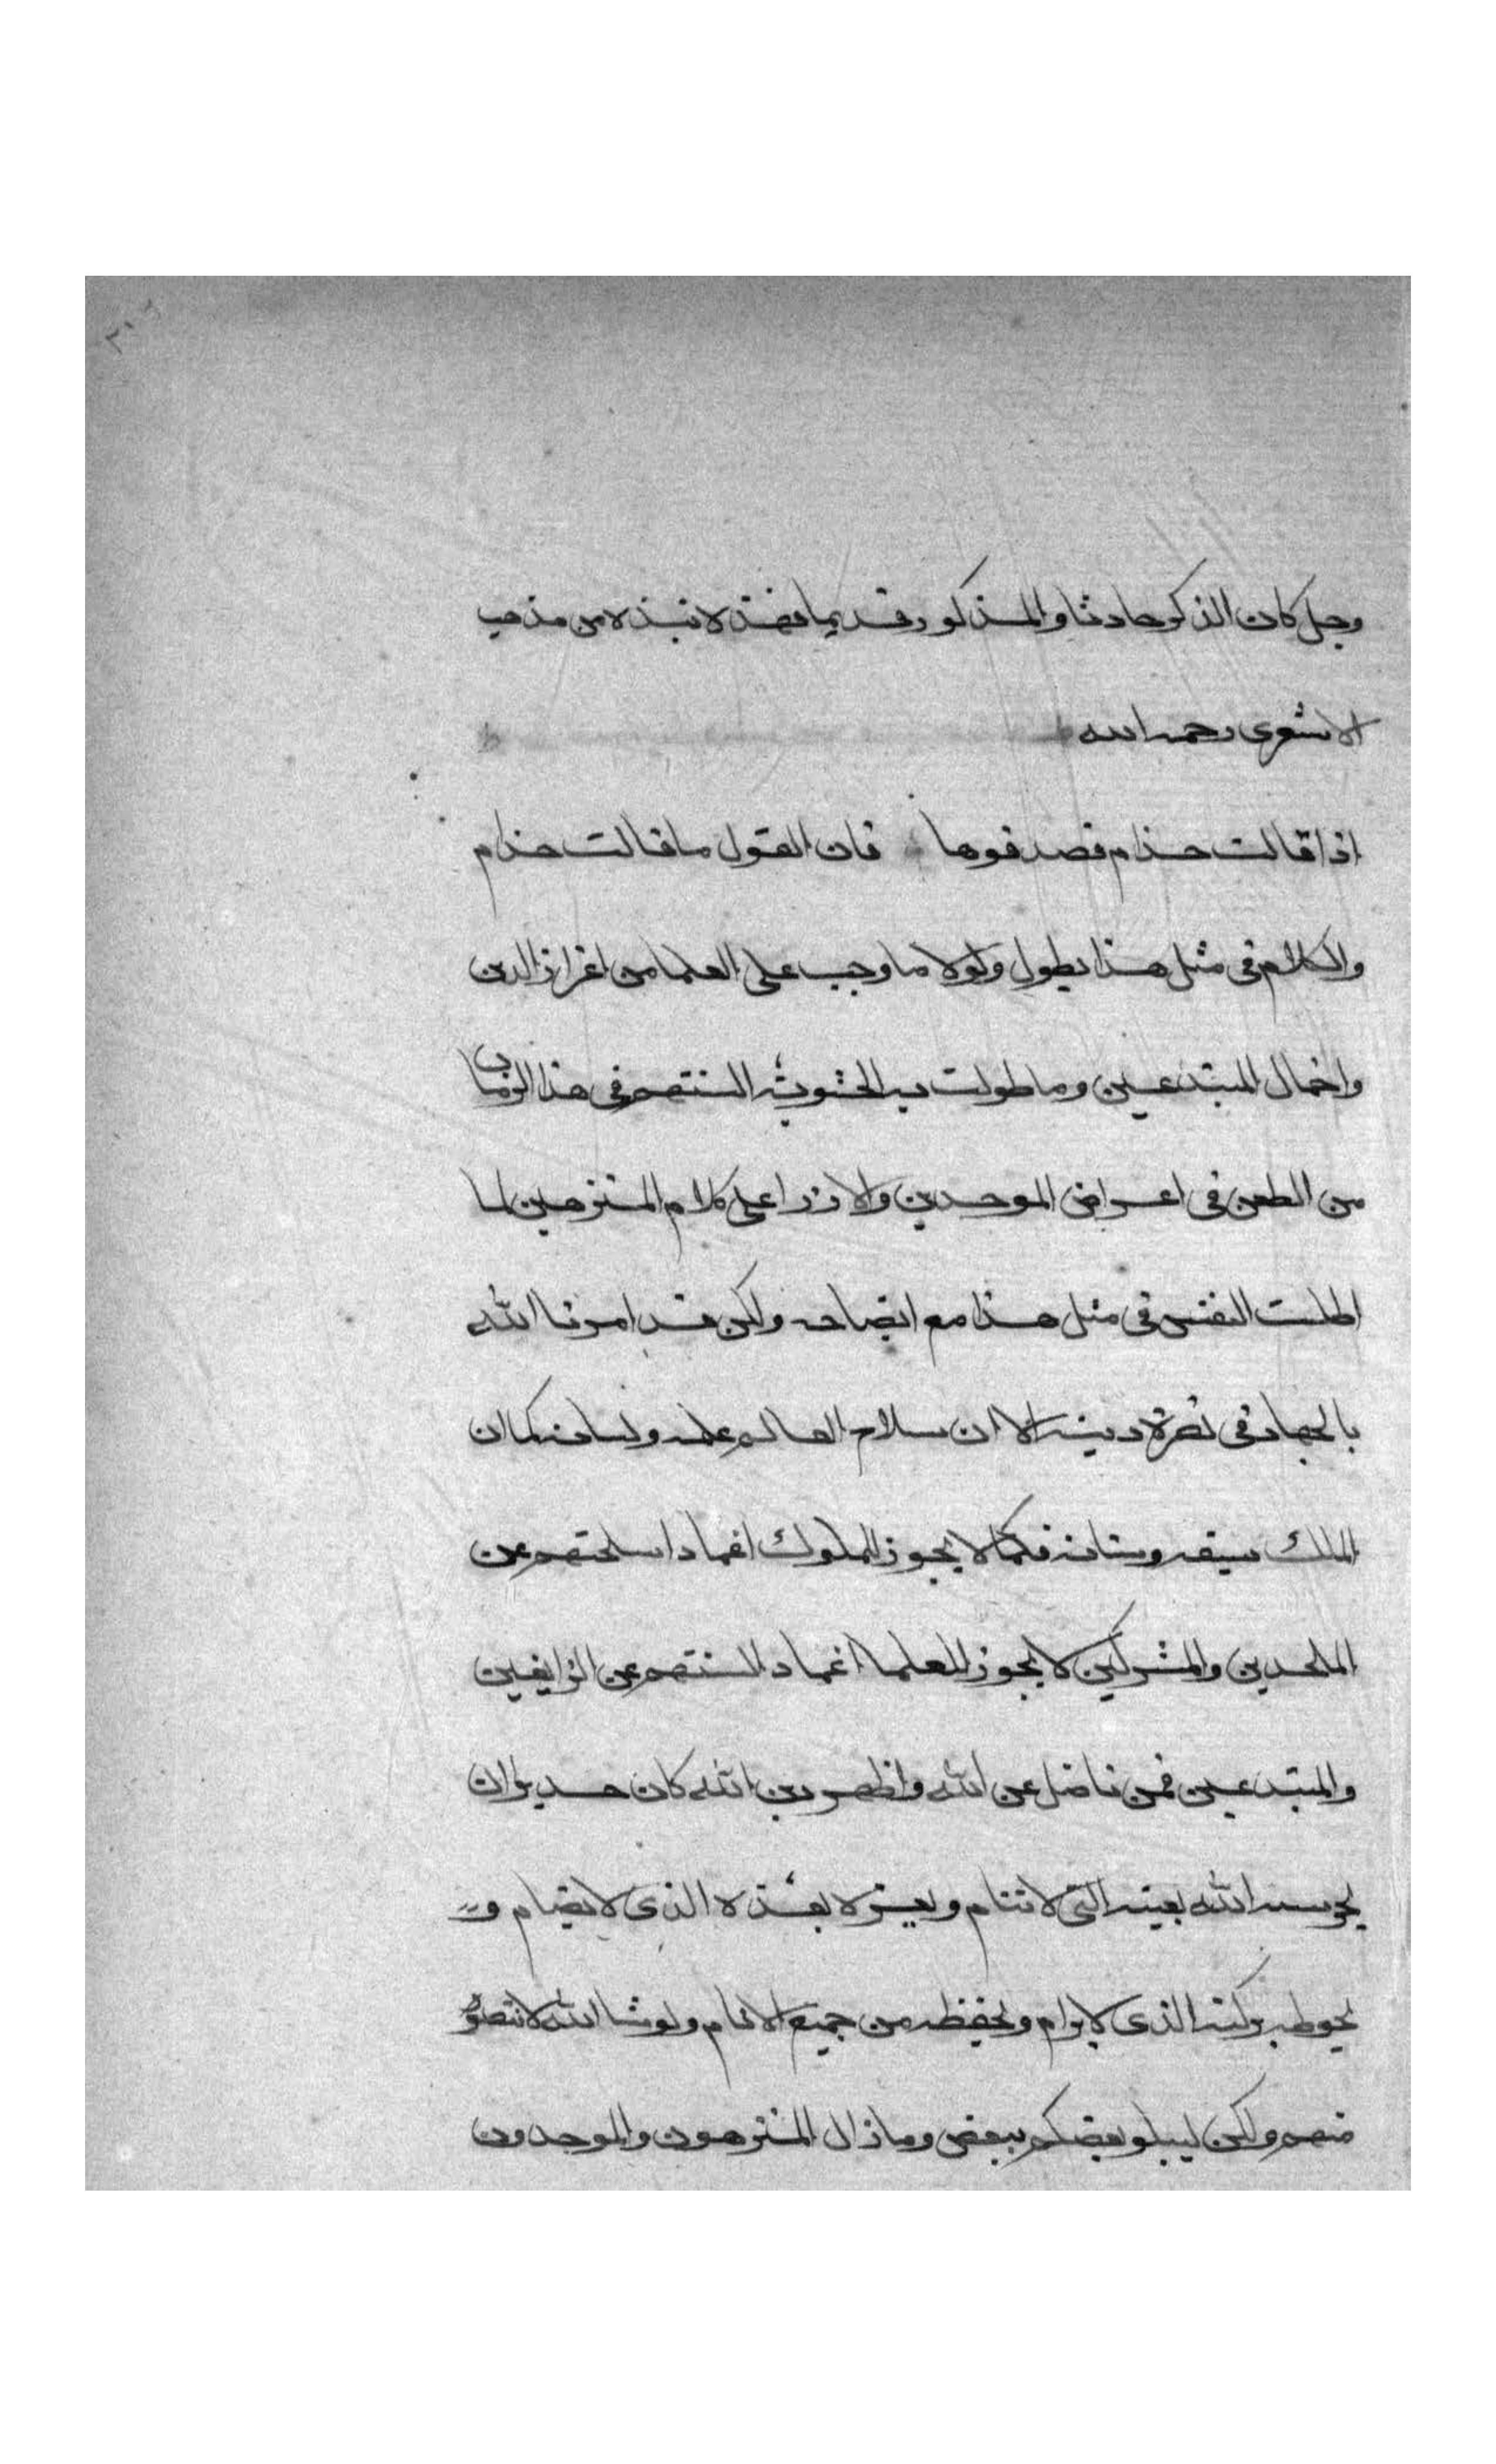 وجل كان الذكر حادثا والمذكور قديما فهذه نبذه من مذهب
الاشعرى رحمه الله
اذا قالت حذام فصدقوها فان القول ما قالت حذام
والكلام فى مثل هذا يطول ولولا ما وجب على العلما من اعزاز الدين
واخمال المبتدعين وما طولت به الحشوية السنتهم فى هذا الزمان
من الطعن فى اعراض الموحدين والازرا على كلام المنزهين لما
اطلت النفس فى مثل هذا مع ايضاحه ولكن قد امرنا الله
بالجهاد فى نصرة دينه الا ان سلاح العالم علمه ولسانه كما ان
الملك سيفه وسنانه فكما لا يجوز للملوك اغماد اسلحتهم عن
الملحدين والمشركين لا يجوز للعلما اغماد السنتهم عن الزايغين
والمبتدعين فمن ناضل عن الله واظهر دين الله كان جديرا ان
يحرسه الله بعينه التى لا تنام ويعزه بعزه الذى لا يضام و
يحوطه بركنه الذى لا يرام ويحفظه من جميع الانام ولو شا الله لانتصر
منهم ولكن ليبلو بعضكم ببعض وما زال المنزهون والموحدون